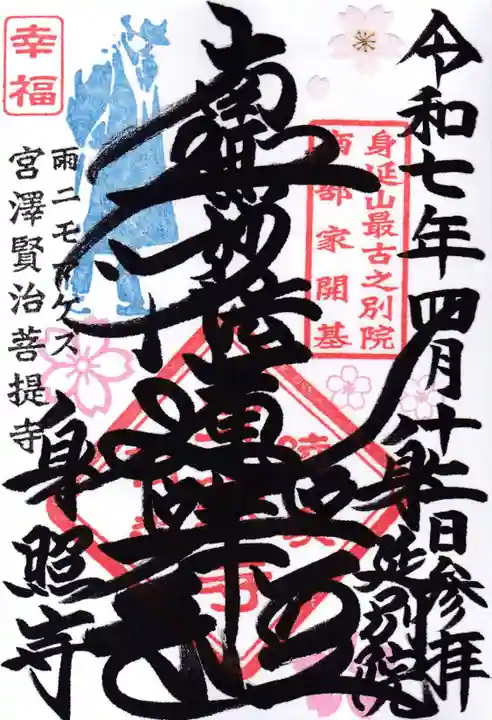 令和七年四月十二日参拝
身延別院
身延山最古之別院
南部家開基
南無妙法蓮華経
幸福
雨ニモマケズ
宮澤賢治菩提寺
身照寺